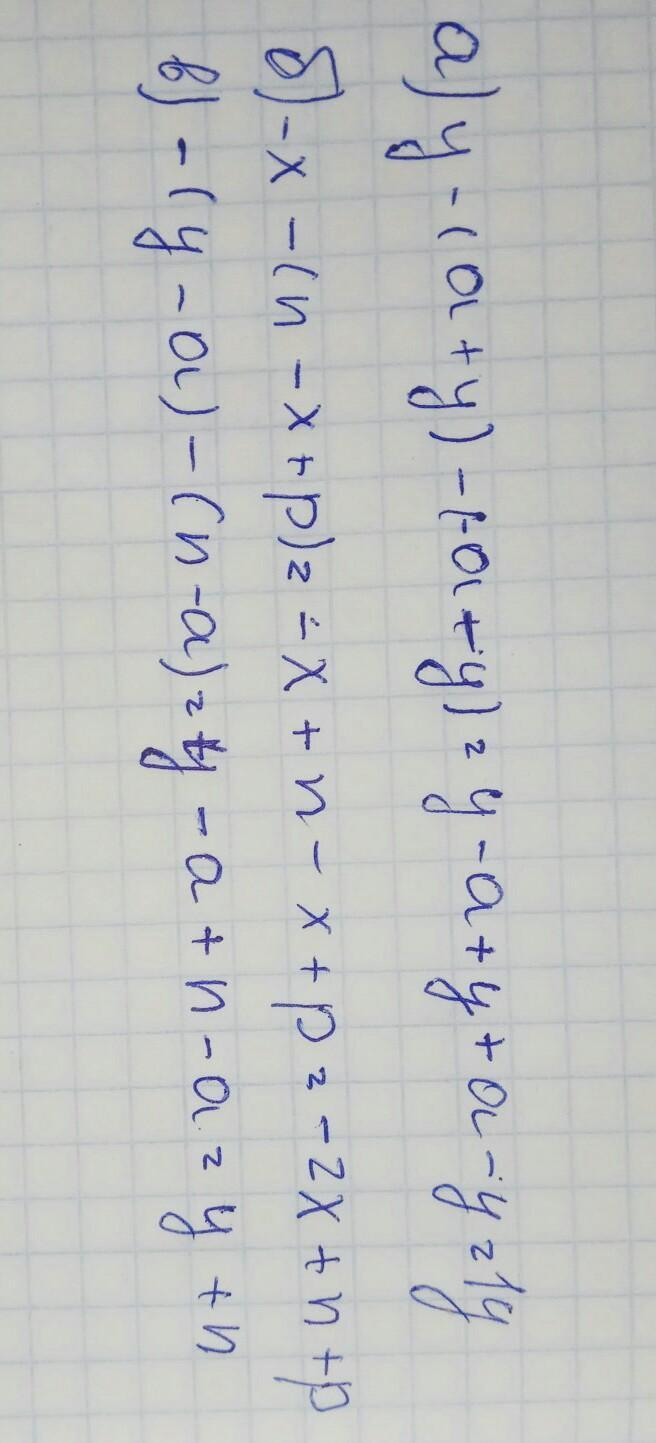 а) y - (a + y) - (-a + y) = y - a + y + a - y = 1y
б) -x - (n - x + p) = -x + n - x + p = -2x + n + p
в) - (y - a) - (n - a) = y - a + n - a = y + n